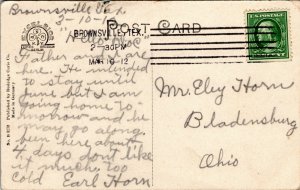 Brownsville Tex
3-10-1
POST CARD
BROWNSVILLE, TEX.
2-30PM
MAR 10 12
Father and I are
here. He intended
to stay until
June but I am
going home to
morrow and he
may go along
been here about
4 days dont like
it much, too
cold Earl Horn
Mr. Eley Horn
Bladensburg
Ohio